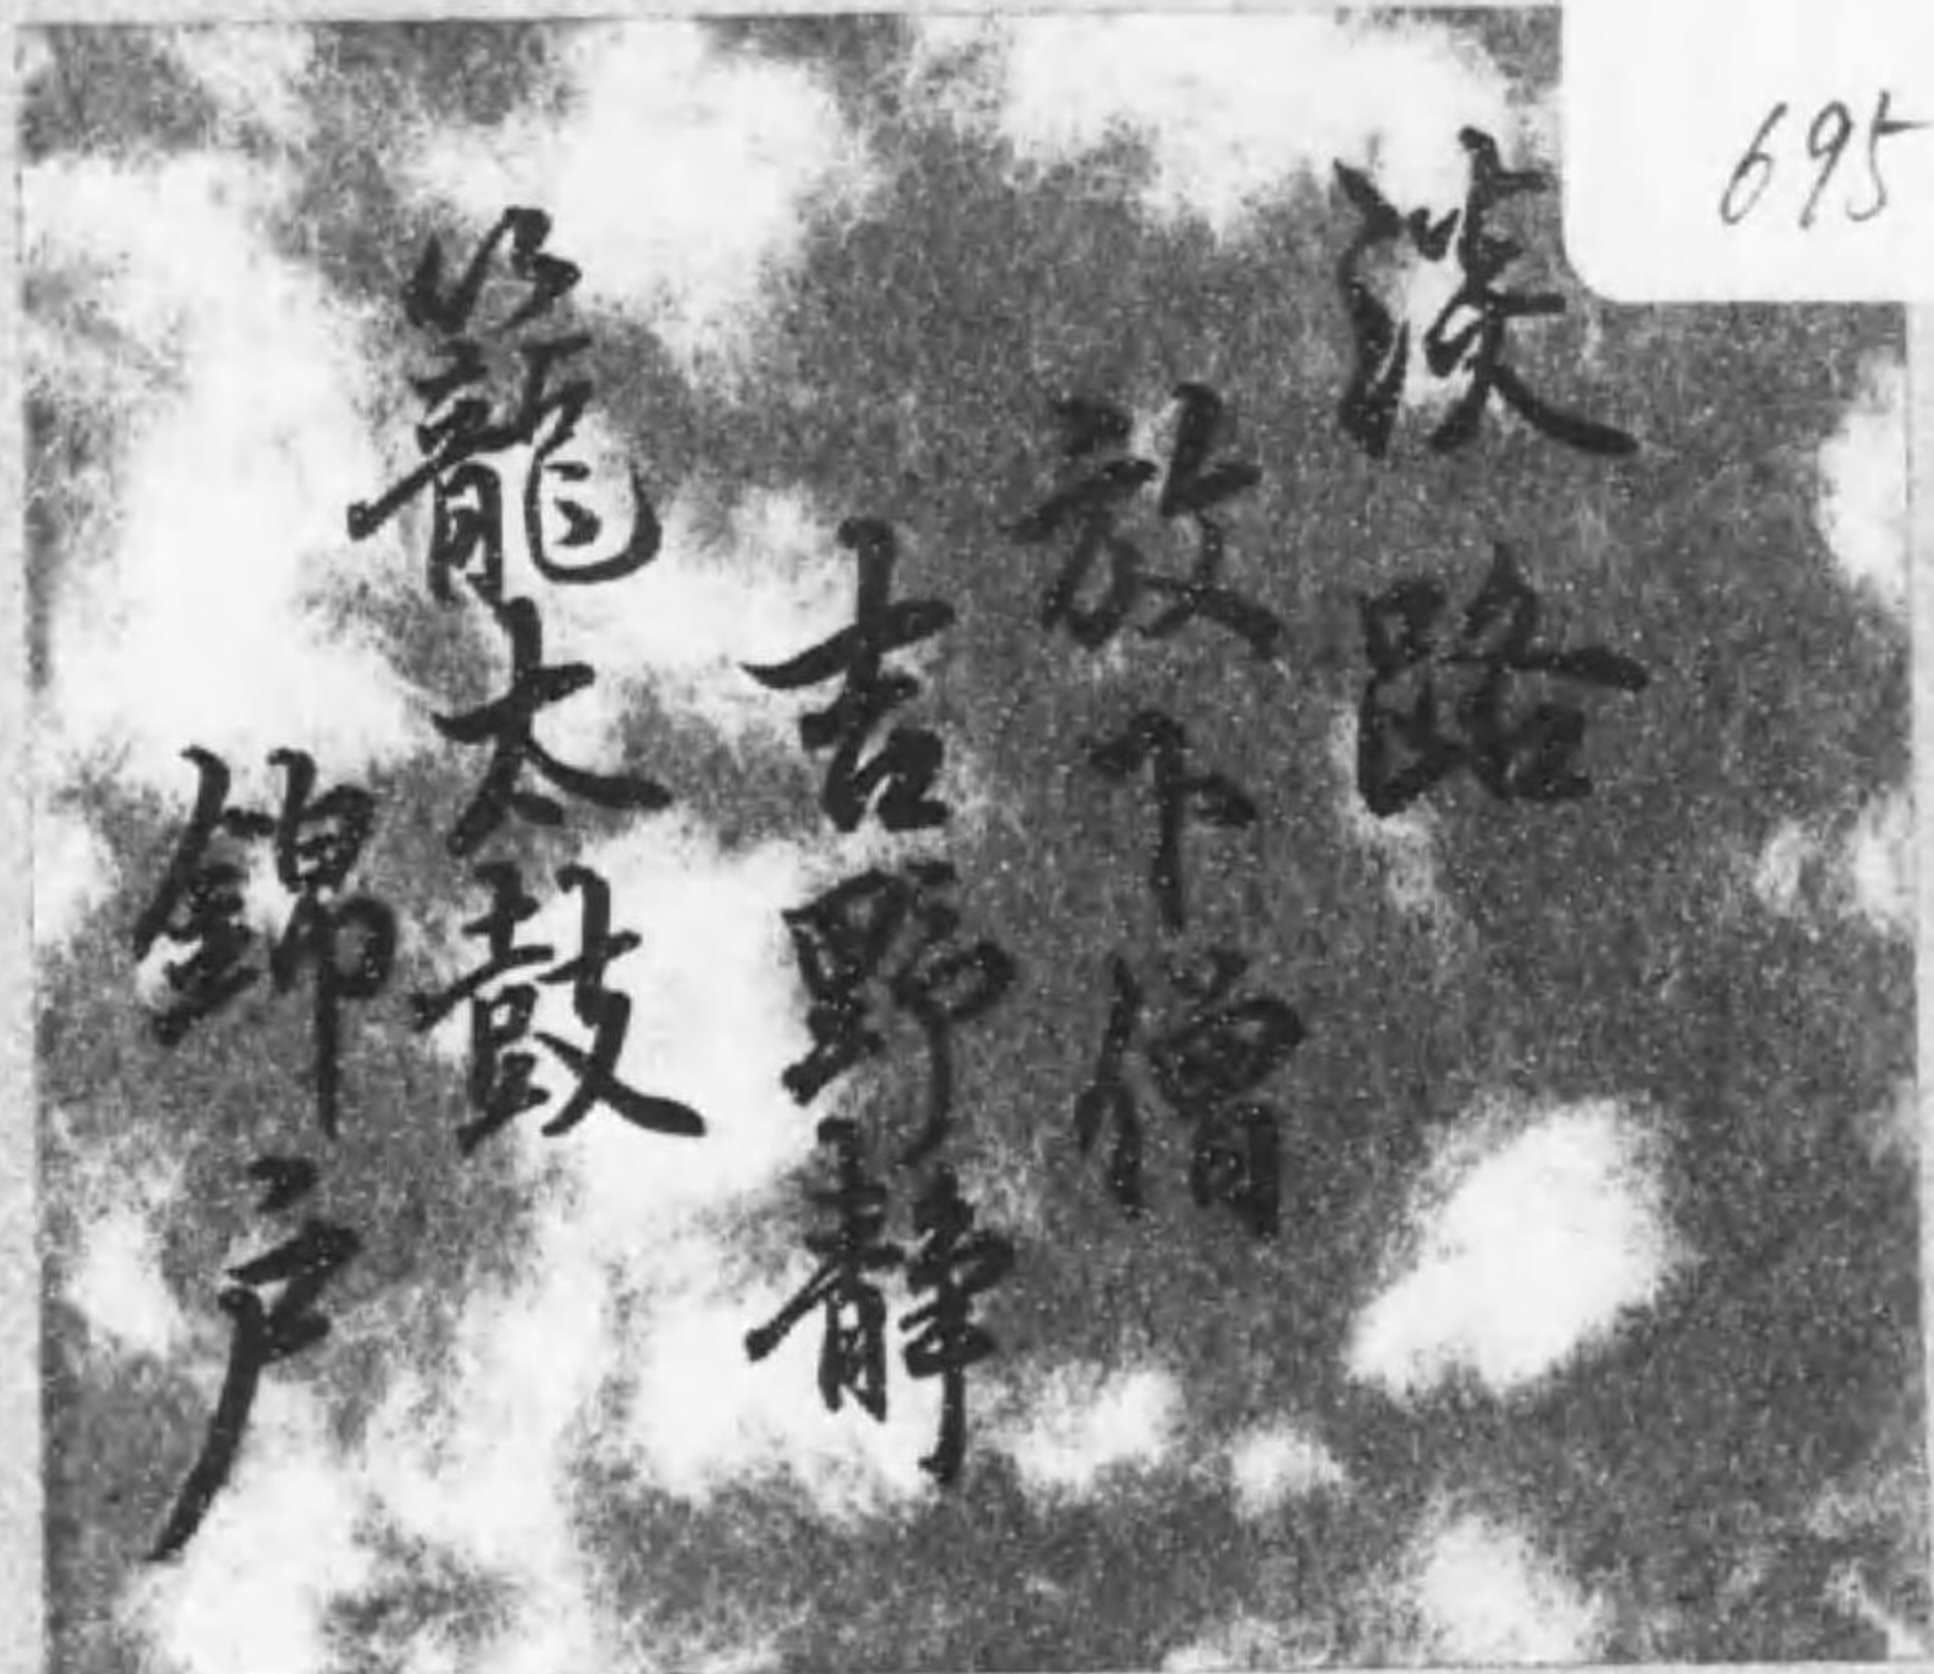 695
淡路
放下僧
吉野静
籠太鼓
錦戸